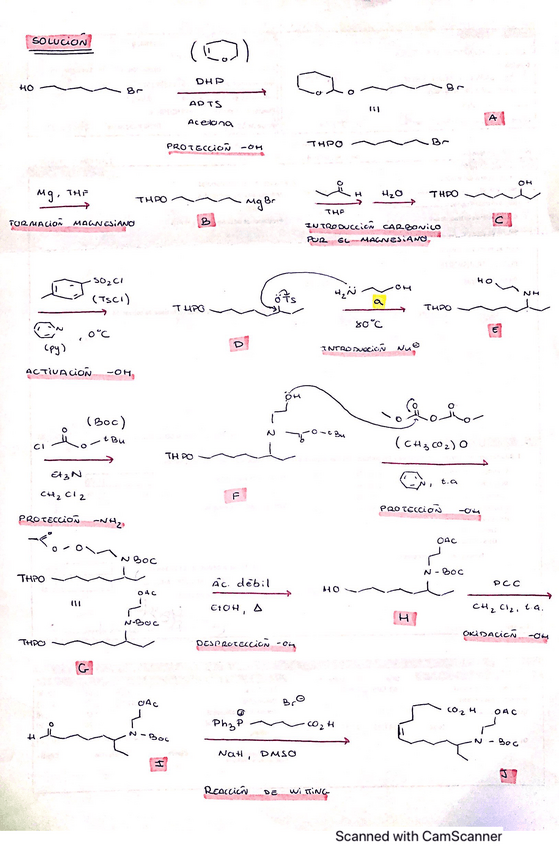 SOLUCIÓN
( O )
HO Br
DHP
ADTS
Acetona
PROTECCIÓN -OH
O O Br
III
A
THPO Br
Mg, THF
FORMACIÓN MAGNESIANO
THPO MgBr
B
O H
THF
H2O
INTRODUCCIÓN CARBONICO
POR EL MAGNESIANO.
THPO OH
C
SO2Cl
(TsCl)
N
(py)
, 0°C
ACTIVACIÓN -OH.
THPO OTs
D
H2N OH
a
80°C
INTRODUCCIÓN Nu⊖
HO
NH
THPO
E
(Boc)
Cl O O tBu
Et3N
CH2Cl2
PROTECCIÓN -NH2
OH
N O-tBu
THPO
F
O O O O O
(CH3CO2)O
N, t.a
PROTECCIÓN -OH
O O-O
N BOC
THPO
III
OAC
N-BOC
THPO
G
Ác. débil
EtOH, Δ
DESPROTECCIÓN -OH
OAC
N-BOC
HO
H
PCC
CH2Cl2, t.a.
OXIDACIÓN -OH
O
H
OAC
N-BOC
I
Br⊖
Ph3P⊕ CO2H
NaH, DMSO
REACCIÓN DE WITTING
CO2H
OAC
N-BOC
J
Scanned with CamScanner